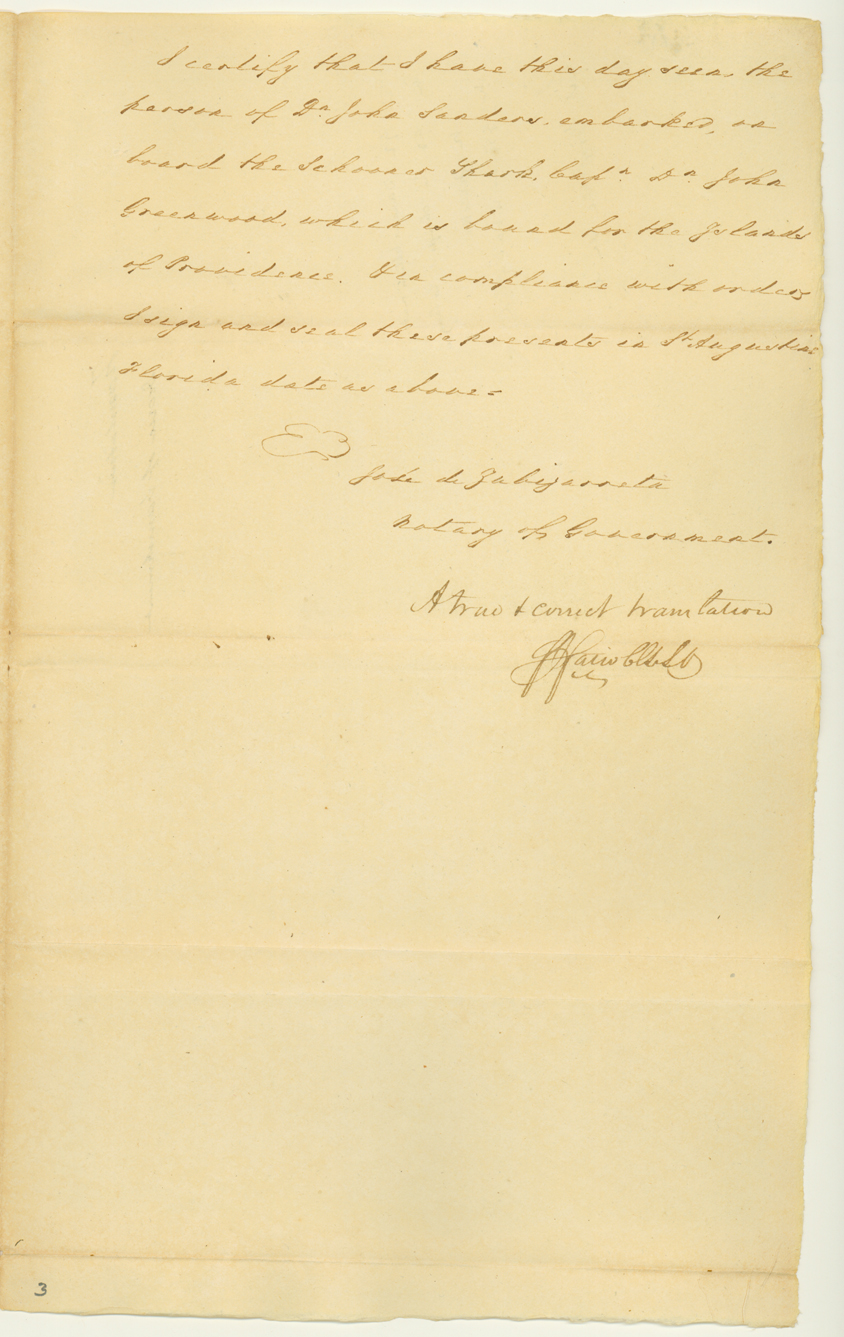 I certify that I have this day seen the
person of Dn. John Sanders, embarked, on
board the Schooner Shark, Capn. Dn. John
Greenwood, which is bound for the Islands
of Providence. & in compliance with orders
I sign and seal these presents in St. Augustine
Florida date as above =
Jose de Zubizarreta
Notary of Government.
A true & correct translation
3